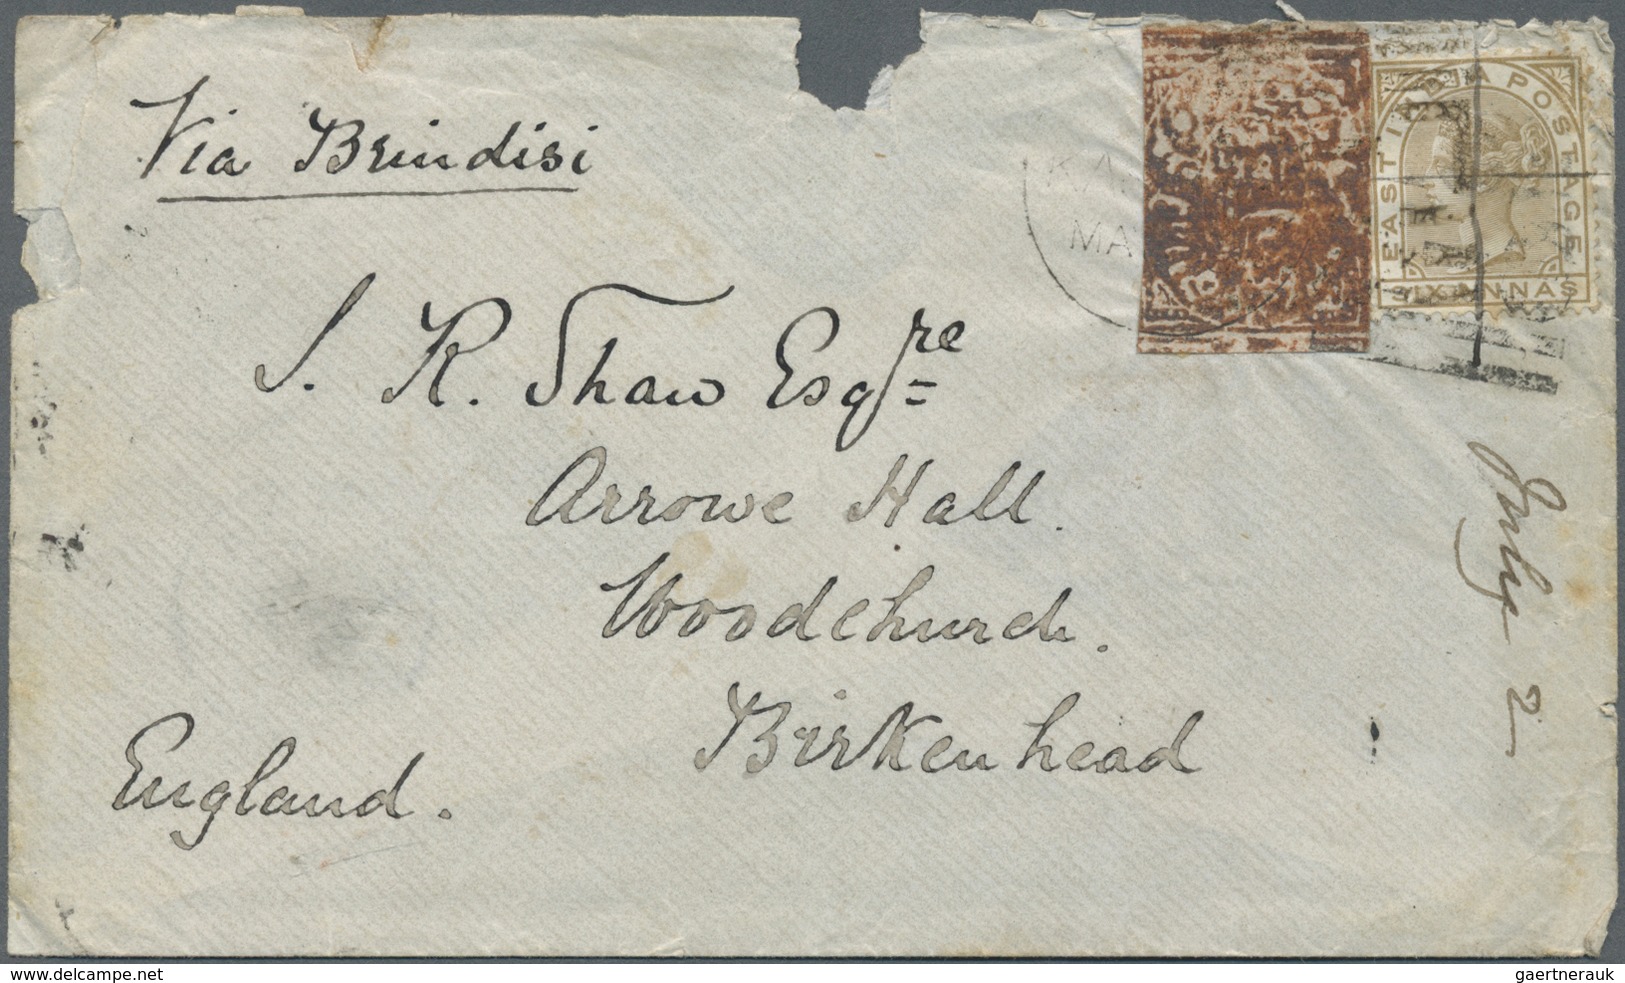 Via Brindisi
EAST INDIA POSTAGE
SIX ANNAS
MA
J. R. Shaw Esqre
Arrowe Hall.
Woodchurch.
Birkenhead
England.
July 2
www.delcampe.net
gaertnerauk